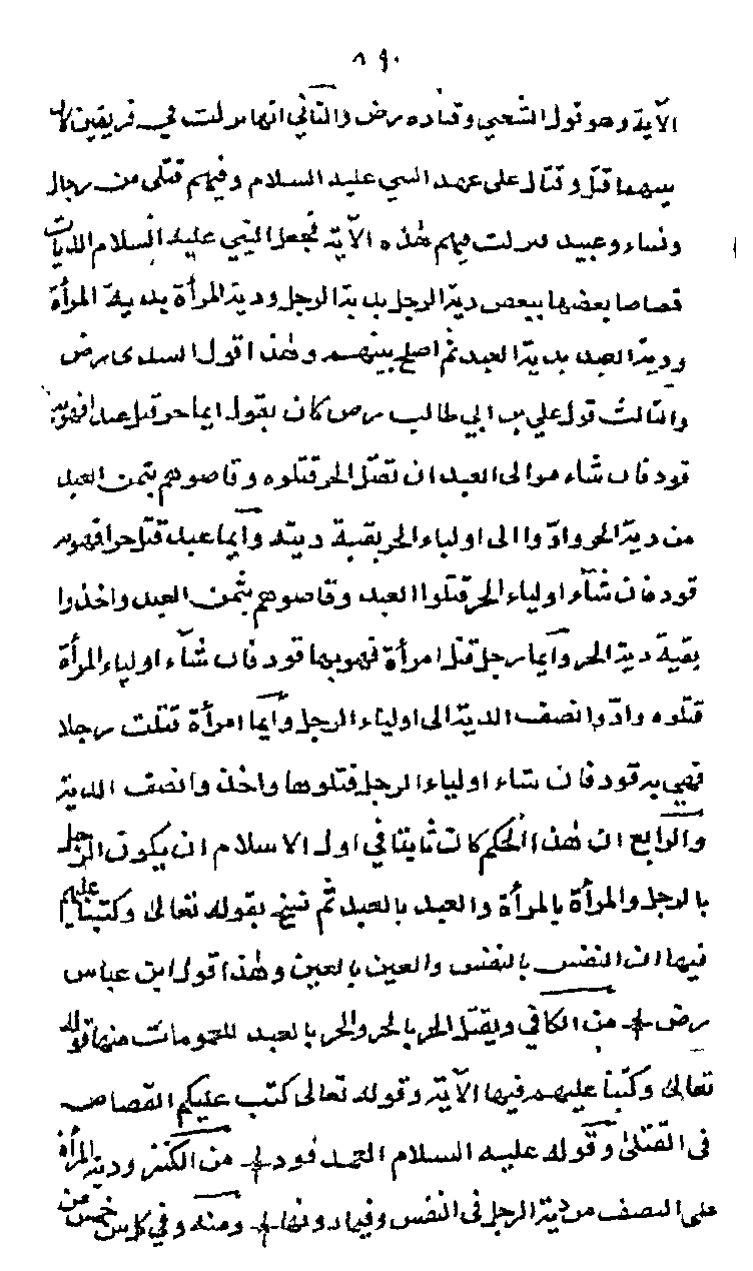 ٨٩٠
الآية وهو قول الشعبي وقتاده رض والثاني انها نزلت في فريقين كان
بينهما قتل وقتال على عهد النبي عليه السلام وفيهم قتلى من رجال
ونساء وعبيد فنزلت فيهم هذه الآية فجعل النبي عليه السلام الديات
قصاصا بعضها ببعض دية الرجل بدية الرجل ودية المرأة بدية المرأة
ودية العبد بدية العبد ثم اصلح بينهم وهذا قول السدي رض
والثالث قول علي بن ابي طالب رض كان يقول ايما حر قتل عبدا فهو به
قود فان شاء موالى العبد ان تقتل الحر قتلوه وقاصوهم بثمن العبد
من دية الحر وادّوا الى اولياء الحر بقية ديته وايما عبد قتل حرا فهو به
قود فان شآء اولياء الحر قتلوا العبد وقاصوهم بثمن العبد واخذوا
بقية دية الحر وايما رجل قتل امرأة فهو بها قود فان شآء اولياء المرأة
قتلوه وادّوا نصف الدية الى اولياء الرجل وايما امرأة قتلت رجلا
فهي به قود فان شاء اولياء الرجل قتلوها واخذوا نصف الدية
والرابع ان هذا الحكم كان ثابتا في اول الاسلام ان يكون الرجل
بالرجل والمرأة بالمرأة والعبد بالعبد ثم نسخ بقوله تعالى وكتبنا عليهم
فيها ان النفس بالنفس والعين بالعين وهذا قول ابن عباس
رض من الكافي ويقتل الحر بالحر والحر بالعبد للعمومات منها قوله
تعالى وكتبنا عليهم فيها الآية وقوله تعالى كتب عليكم القصاص
في القتلى وقوله عليه السلام العمد قود من الكنز ودية المرأة
على النصف من دية الرجل في النفس وفيما دونها ومنه وفي كل سن خمس من